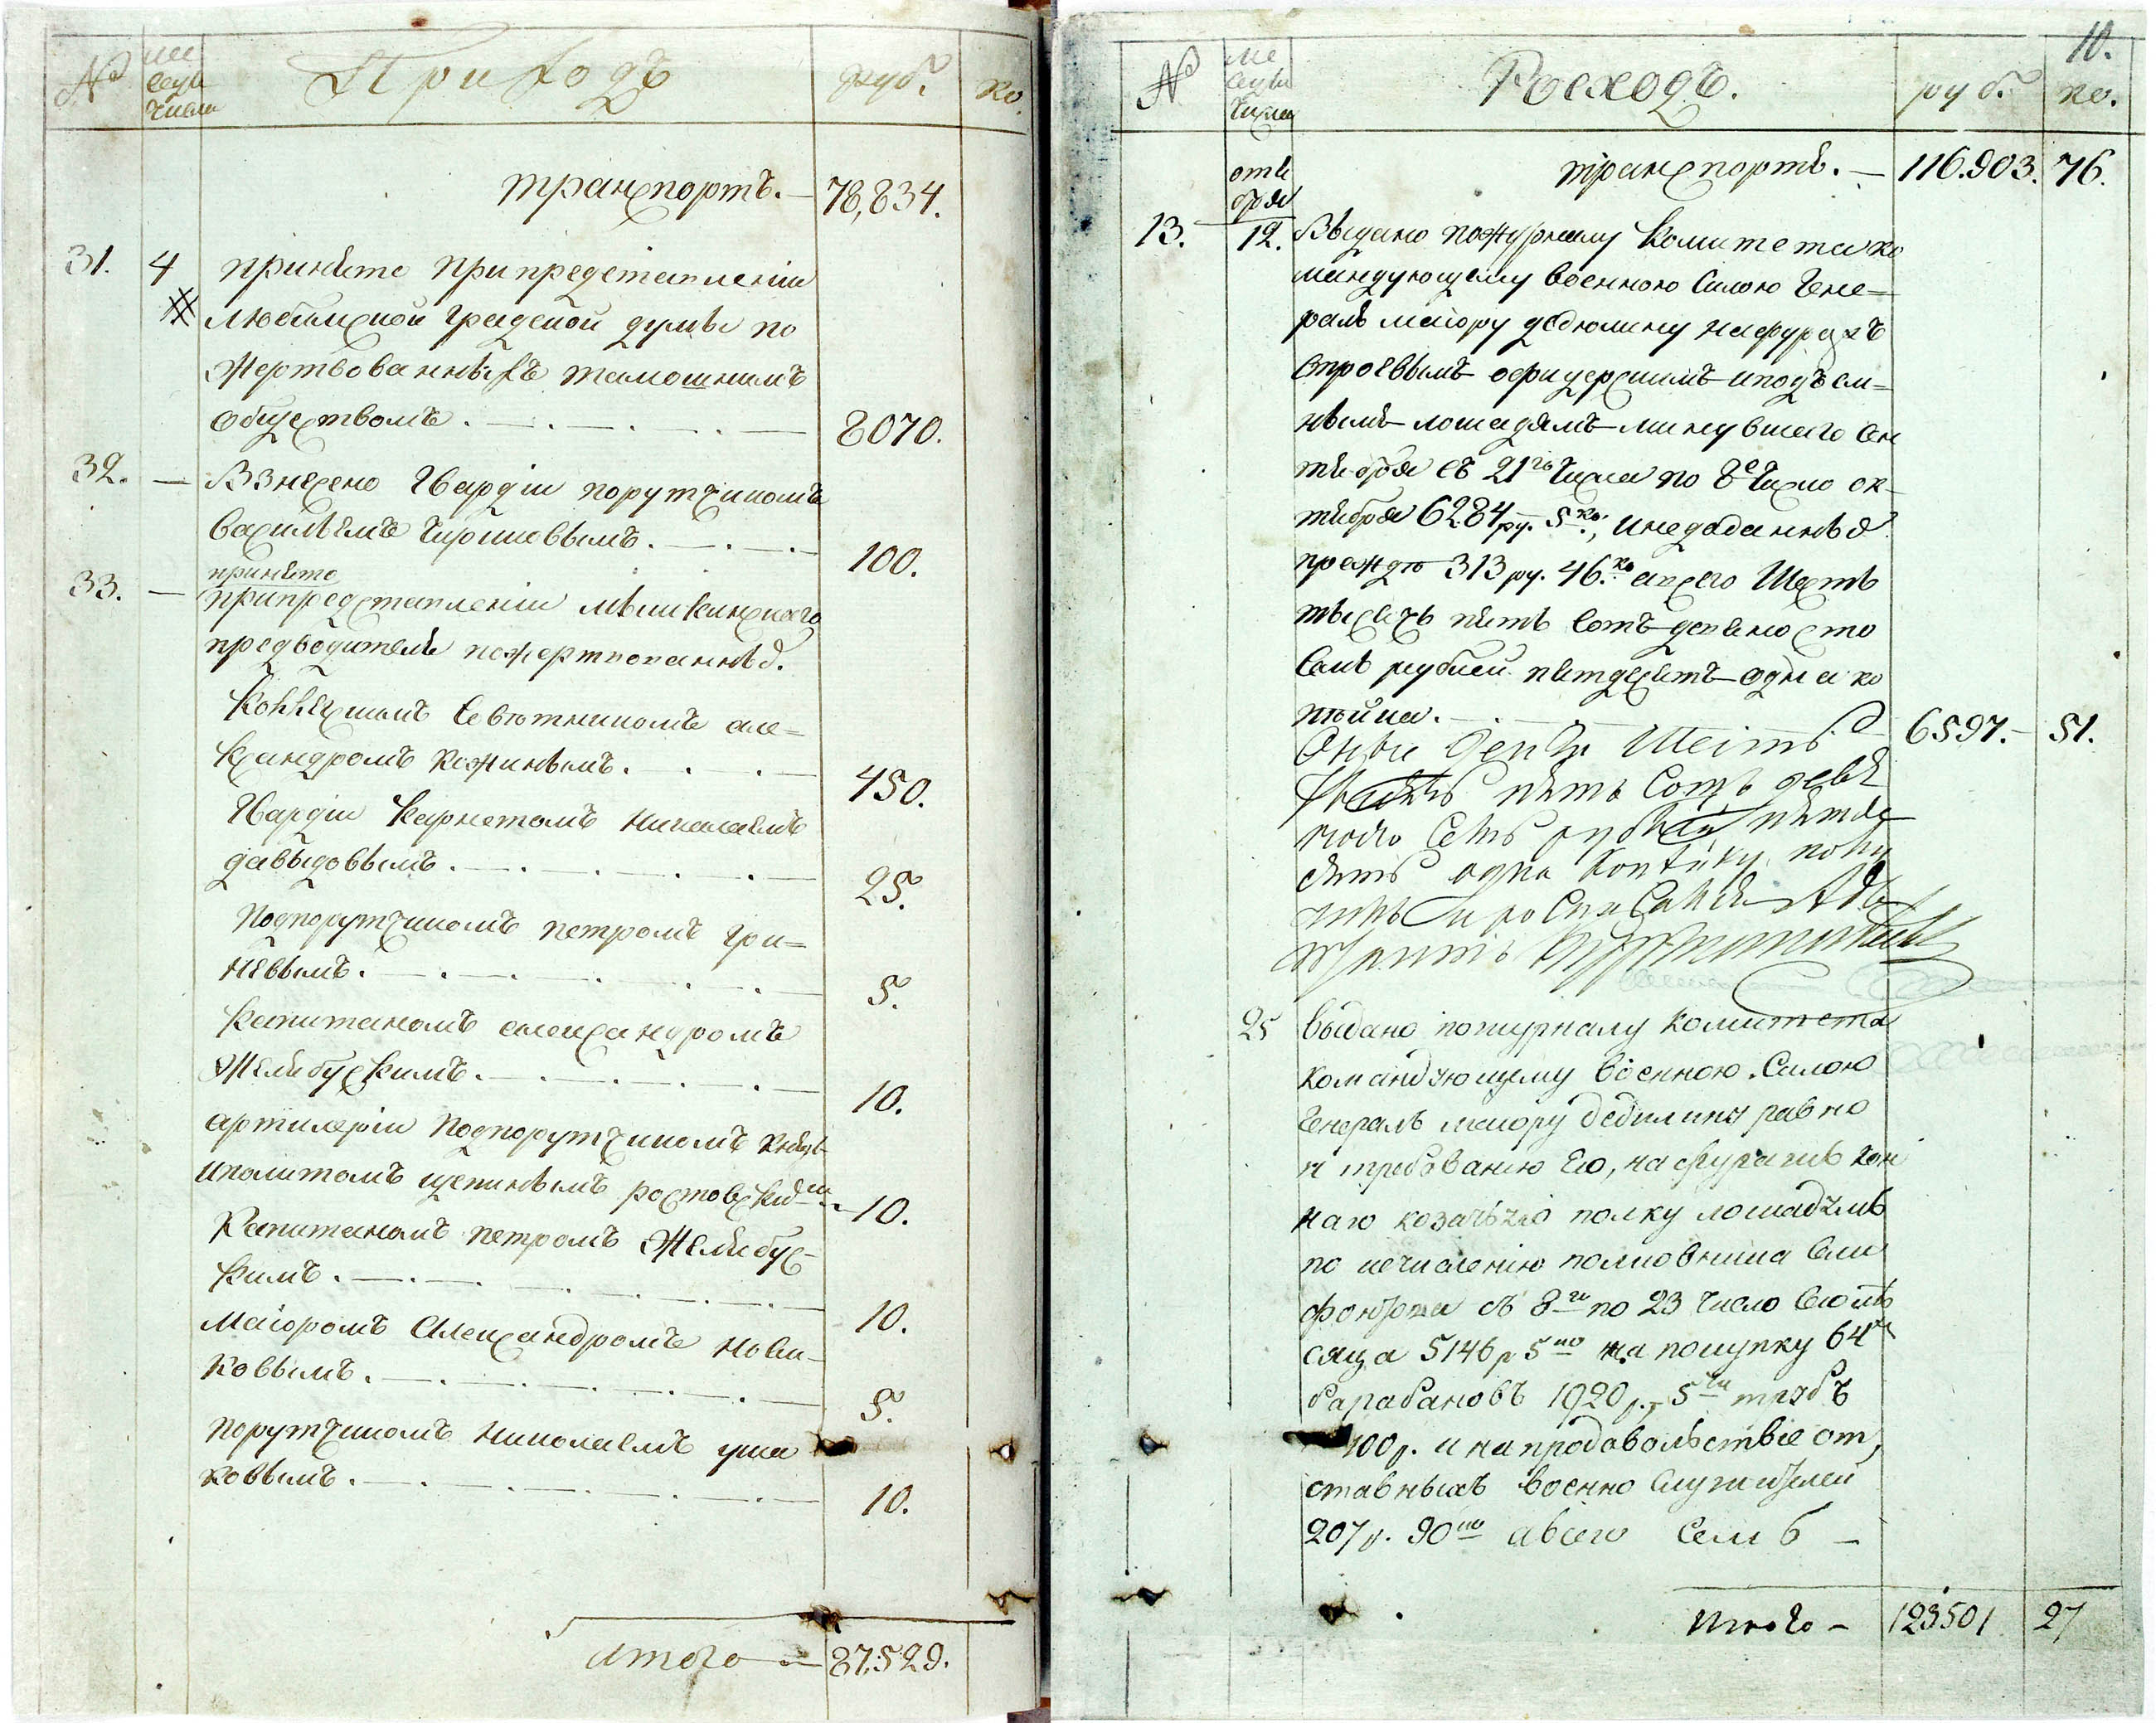 №
ме
сецы
числа
Приходъ
руб.
ко.
транспортъ. — 78,834.
31. 4 принято при представленіи
любимской градской думы по
жертвованныхъ тамошнимъ
обществомъ. 8070.
32. — Взнесено Гвардіи порутчикомъ
Васильемъ Чириковымъ. 100.
принято
33. — при представленіи мышкинскаго
предводителя пожертвованныя.
Коллежскимъ Советникомъ але=
ксандромъ Кожинымъ. 450.
Гвардіи Карнетомъ Николаемъ
давыдовымъ. 25.
Подпорутчикомъ петромъ Гри=
невымъ. 5.
Капитаномъ александромъ
Желябускимъ. 10.
артилеріи Подпорутчикомъ Княземъ
иполитомъ щепинымъ ростовскимъ 10.
Капитаномъ петромъ Желябус-
кимъ. 10.
Маіоромъ Александромъ Нови-
ковымъ. 5.
порутчикомъ николаемъ уша
ковымъ. 10.
Итого — 87,529.
10.
№
ме
сецы
числа
Росходъ.
руб.
ко.
октя
бря
транспортъ. — 116.903. 76.
13. 12. Выдано по журналу Комитета ко
мандующему военною Силою Гене=
ралъ маіору дедюлину на фуражъ
строевымъ офицерскимъ и подъем-
нымъ лошадямъ минувшаго Сен
тября съ 21го Числа по 8е Число ок-
тября 6284 ру. 5 ко., и недоданныя
прежде 313 ру. 46. ко а всего Шесть
тысячъ пять Сотъ девяносто
Семь рублей пятдесятъ одна ко
пейка. 6597. — 51.
Оныя Денги Шесть
тысячъ пять Сотъ девя
носто Семь рублей пятде
сятъ одна Копейку полу
чилъ
25 Выдано по журналу Комитета
командующему военною Силою
Генералъ маіору дедюлину равно
и требованію Его, на фуражъ кон
наго козачьяго полку лошадямъ
по исчисленію полковника Сели
фонтова съ 8го по 23 число Сего мѣ
сяца 5146 р 5 ко на покупку 64х
барабановъ 1920 р., 5ти трубъ
100 р. и на продовольствіе от,
ставныхъ военно Служителей
207 р. 90 ко а всего Семь —
Итого — 123501 27